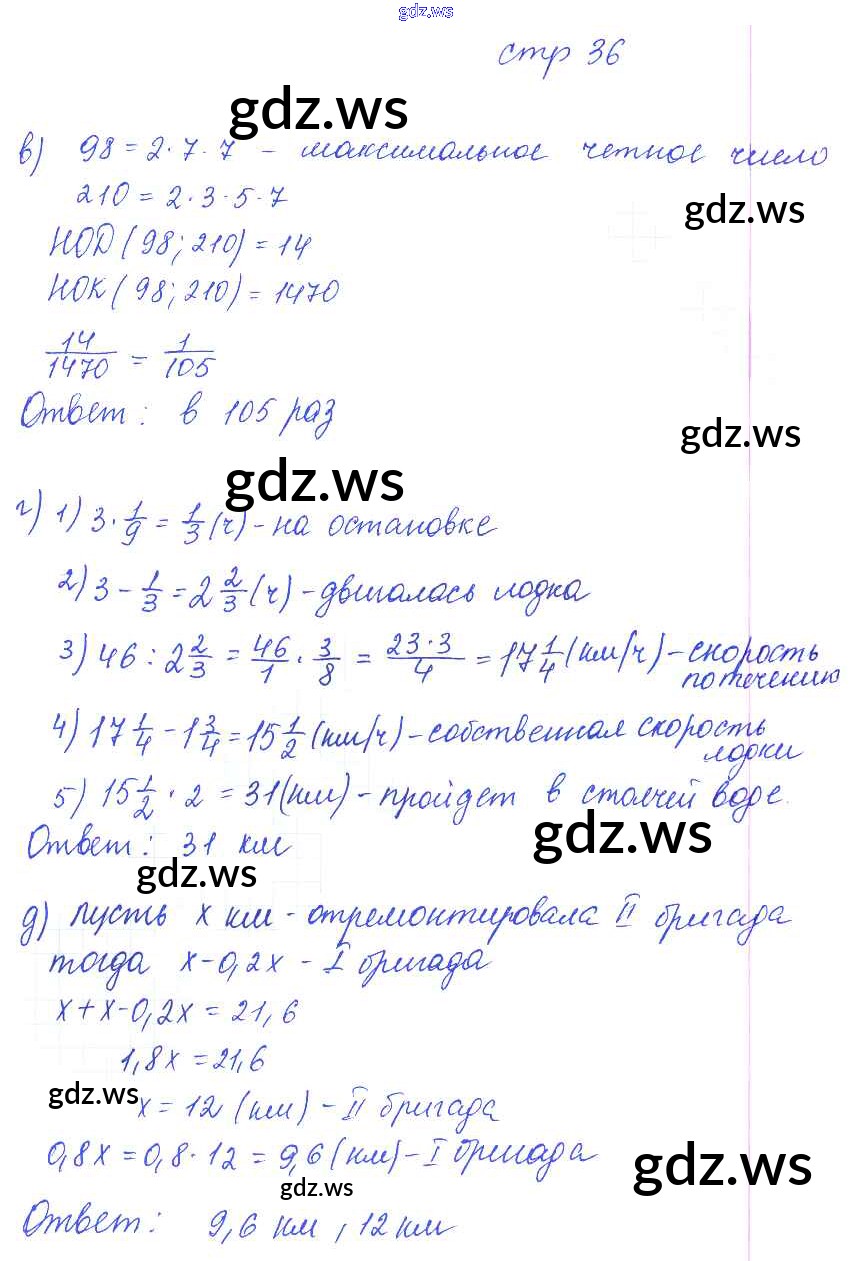 gdz.ws
стр 36
gdz.ws
в) 98 = 2·7·7 - максимальное четное число
210 = 2·3·5·7
gdz.ws
НОД (98; 210) = 14
НОК (98; 210) = 1470
14/1470 = 1/105
Ответ: в 105 раз
gdz.ws
gdz.ws
г) 1) 3·1/9 = 1/3 (ч) - на остановке
2) 3 - 1/3 = 2 2/3 (ч) - двигалась лодка
3) 46 : 2 2/3 = 46/1 · 3/8 = 23·3/4 = 17 1/4 (км/ч) - скорость
по течению
4) 17 1/4 - 1 3/4 = 15 1/2 (км/ч) - собственная скорость
лодки
5) 15 1/2 · 2 = 31 (км) - пройдет в стоячей воде.
gdz.ws
Ответ: 31 км
gdz.ws
д) пусть х км - отремонтировала II бригада
тогда х - 0,2х - I бригада
х + х - 0,2х = 21,6
1,8х = 21,6
gdz.ws
х = 12 (км) - II бригада
0,8х = 0,8·12 = 9,6 (км) - I бригада
gdz.ws
gdz.ws
Ответ: 9,6 км, 12 км